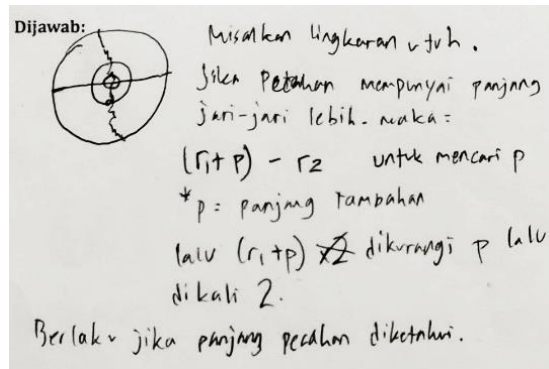 Dijawab:
Misalkan lingkaran utuh.
Jika Patahan mempunyai panjang
jari-jari lebih. maka:
(r₁+p) - r₂ untuk mencari p
*p = panjang tambahan
lalu (r₁+p) dikurangi p lalu
dikali 2.
Berlaku jika panjang pecahan diketahui.